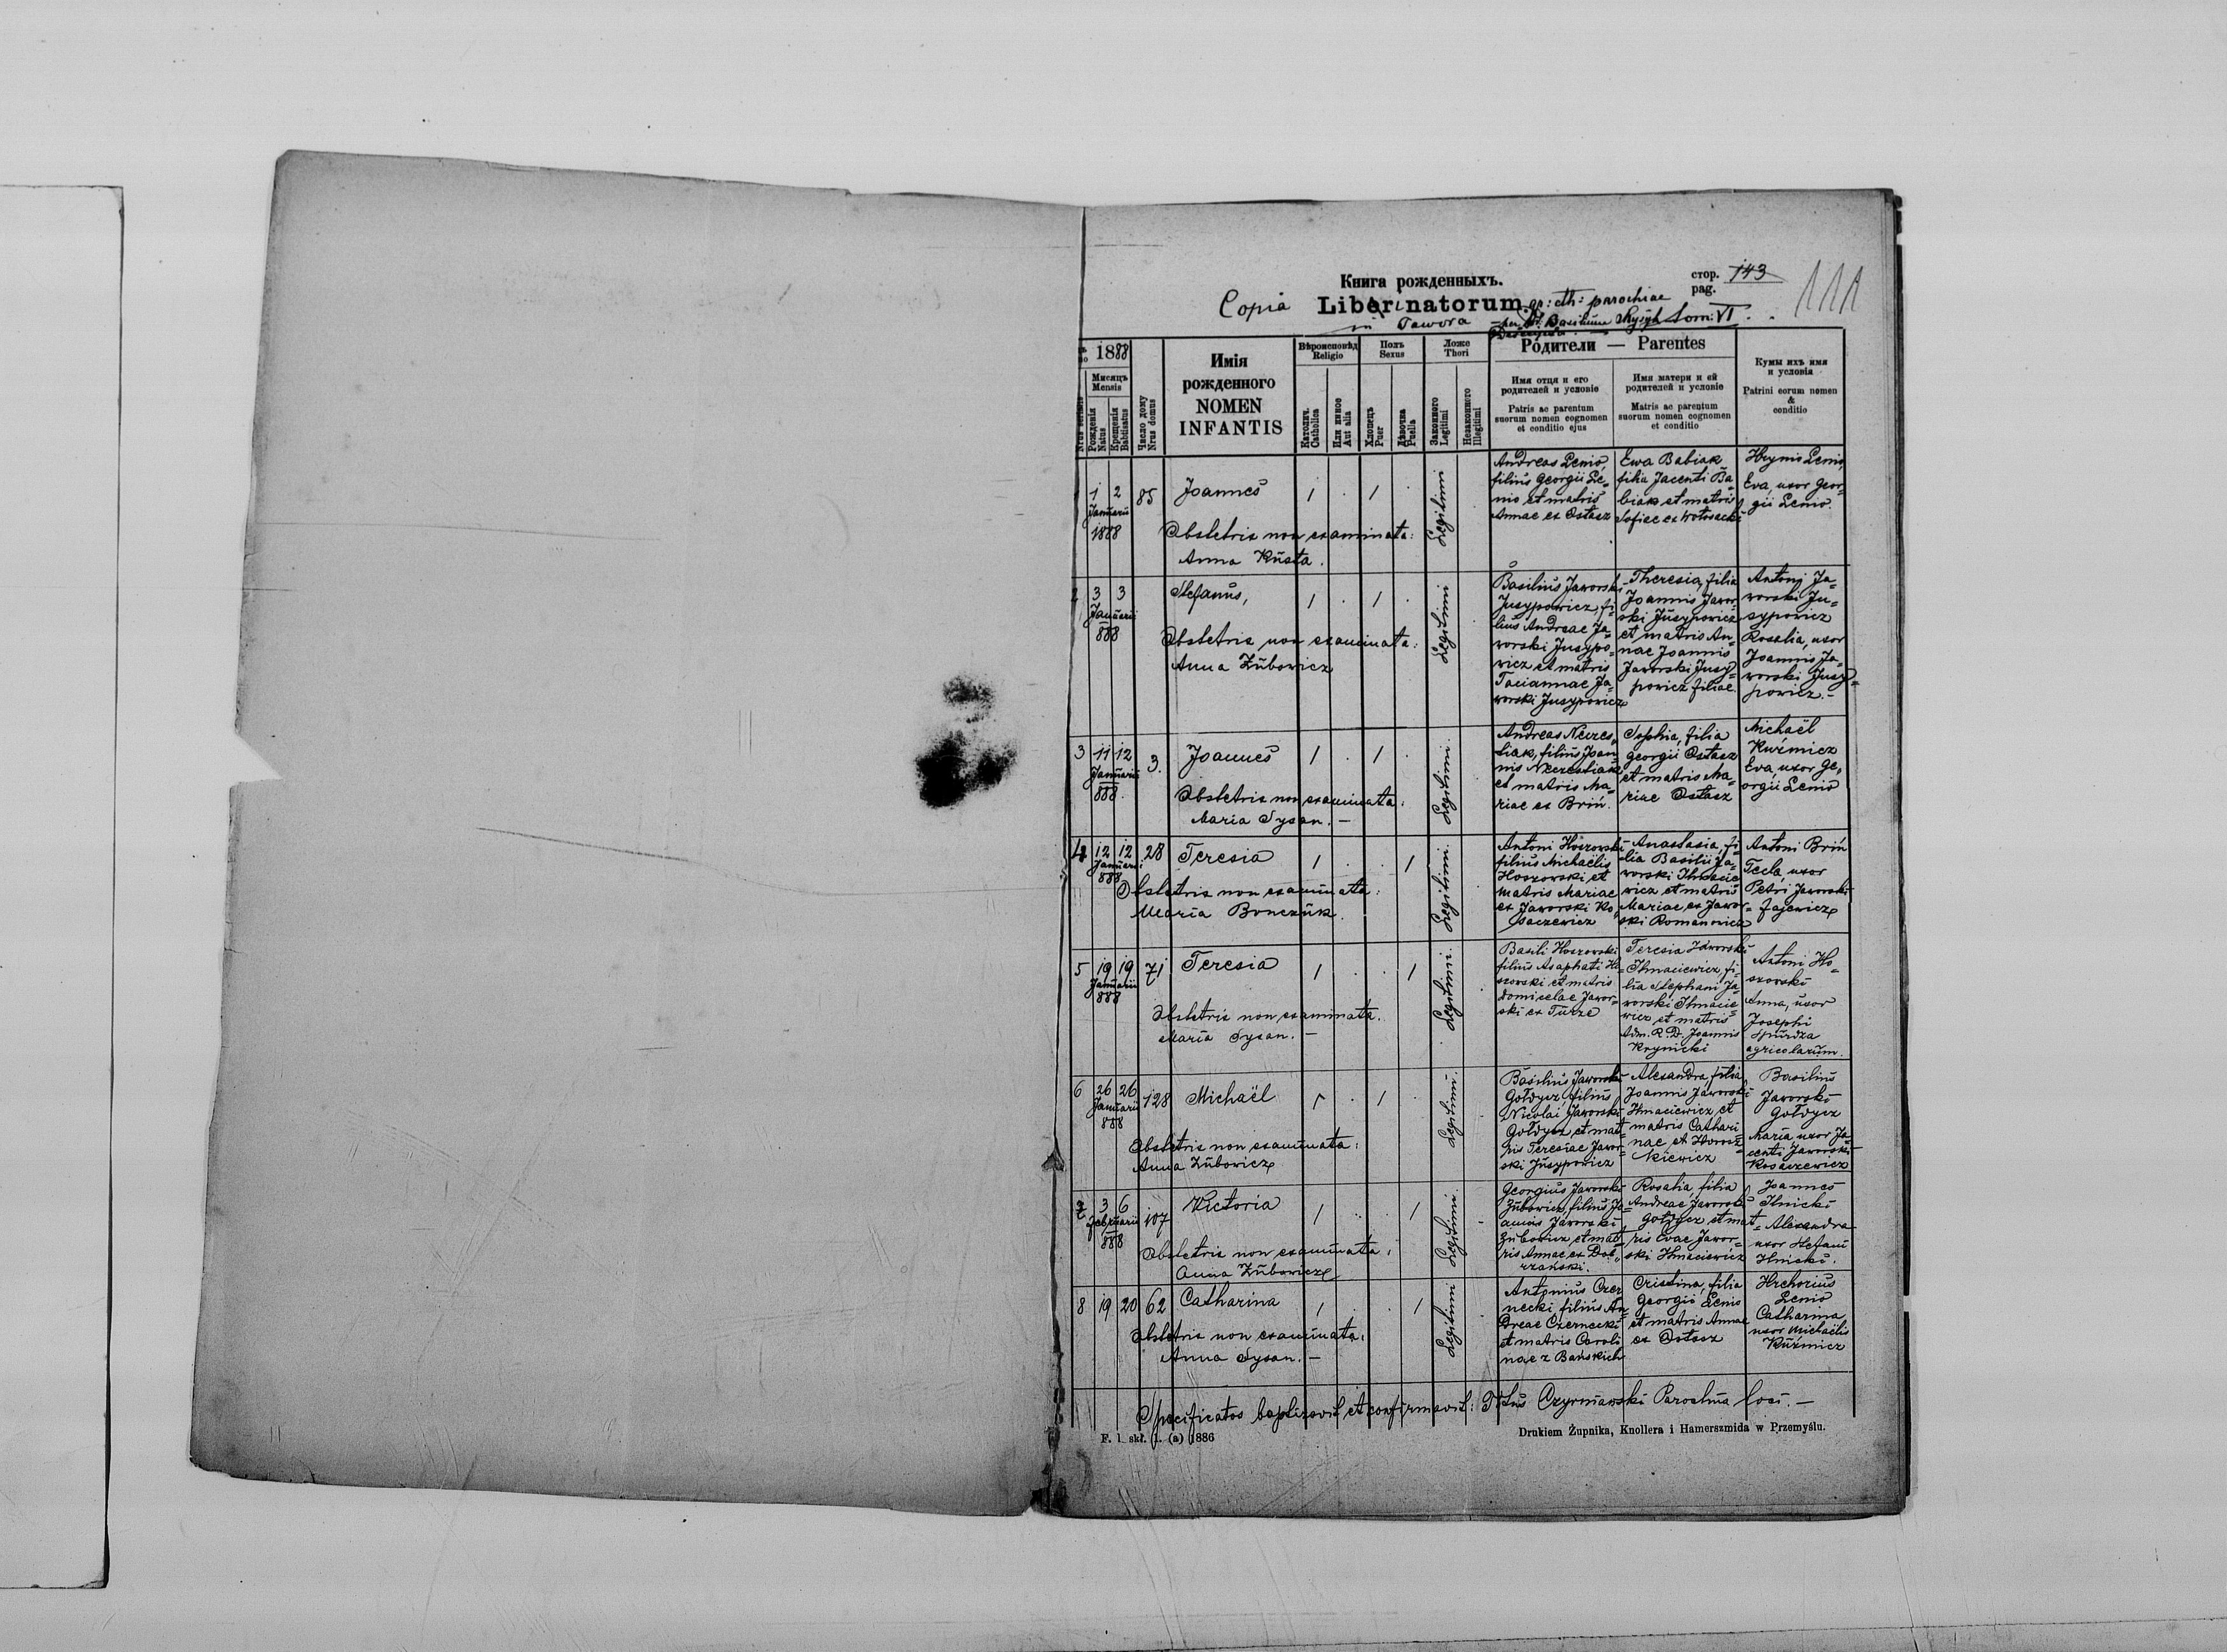 Книга рожденныхъ.
стор. 143
pag.
111
Copia Liber natorum gr: cth: parochiae
in Jawora per Basilium Tom: VI
1888
Мисяцъ
Mensis
Nrus serialis
Рожденія
Natus
Крещенія
Babtisatus
Число дому
Nrus domus
Имія
рожденного
NOMEN
INFANTIS
Вѣроисповѣд
Religio
Католич.
Catholica
Или иное
Aut alia
Полъ
Sexus
Хлопецъ
Puer
Дѣвочка
Puella
Ложе
Thori
Законного
Legitimi
Незаконного
Illegitimi
Родители — Parentes
Имя отця и его
родителей и условіе
Patris ac parentum
suorum nomen cognomen
et conditio ejus
Имя матери и ей
родителей и условіе
Matris ac parentum
suorum nomen cognomen
et conditio
Кумы ихъ имя
и условія
Patrini eorum nomen
&
conditio
1 2
Januarii
1888
85
Joannes
1 . 1 .
Legitimi
Obstetrix non examinata:
Anna Kusta.
Andreas Lenio,
filius Georgii Le-
nio et matris
Annae ex Ostasz
Ewa Babiak
filia Jacenti Ba-
biak et matris
Sofiee ex Wołosacki
Hrynio Lenio,
Eva, uxor Geor-
gii Lenio.
3 3
Januarii
888
Stefanus,
1 . 1 .
Legitimi
Obstetrix non examinata:
Anna Zubowicz
Basilius Jaworski
Jusypowicz, fi-
lius Andreae Ja-
worski Jusypo-
wicz et matris
Taciannae Ja-
worski Jusypowicz
Theresia, filia
Joannis Jawor-
ski Jusypowicz
et matris An-
nae Joannis
Jaworski Jusy-
powicz filiae
Antonj Ja-
worski Ju-
sypowicz
Rosalia, uxor
Joannis Ja-
worski Jusy-
powicz.-
3
11 12
Januarii
888.
3.
Joannes
1 . 1 .
Legitimi.
Obstetrix non examinata:
Maria Sysan. -
Andreas Neures-
tiak, filius Joan-
nis
et matris Ma-
riae ex Briń.
Sophia, filia
Georgii Ostasz
et matris Ma-
riae Ostasz
Michaël
Kuźmicz
Eva, uxor Ge-
orgii Lenio
4
12 12
Januarii
888
28
Teresia
1 . . 1
Legitimi.
Obstetrix non examinata:
Maria Bonczuk.
Antoni Hoszowski
filius Michaëlis
Hoszowski, et
matris Mariae
ex Jaworski Ko-
saczewicz
Anastasia, fi-
lia Basilii Ja-
worski Ihnacie
wicz et matris
Mariae, ex Jawor-
ski Romanowicz
Antoni Briń
Tecla, uxor
Petri Jaworski
Zajewicz
5
19 19
Januarii
888
71
Teresia
1 . . 1
Legitimi.
Obstetrix non examinata.
Maria Sysan. -
Basili Hoszowski
filius Asaphati Ho-
szowski et matris
Domicelae Jawor-
ski ex Turze
Teresia Jaworski
Ihnaciewicz, fi-
lia Stephani Ja-
worski Ihnacie
wicz et matris
Adm. R. D. Joannis
Krynicki
Antoni Ho-
szowski
Anna, uxor
Josephi
Spurdza
agricolarum.
6
26 26
Januarii
888
128
Michaël
1 . 1 .
Legitimi.
Obstetrix non examinata:
Anna Zubowicz
Basilius Jaworski
Gołdycz, filius
Nicolai Jaworski
Gołdycz et mat-
ris Teresiae Jawor-
ski Jusypowicz
Alexandra, filia
Joannis Jaworski
Ihnaciewicz et
matris Cathari
nae et Horosz-
kiewicz
Basilius
Jaworski
Gołdycz
Maria uxor Ja-
centi Jaworski
Kosaczewicz
7
3 6
Februarii
888
107
Victoria
1 . . 1
Legitimi.
Obstetrix non examinata:
Anna Zubowicz
Georgius Jaworski
Zubowicz, filius Jo-
annis Jaworski
Zubowicz et mat
ris Annae ex Dob-
rzański.
Rosalia, filia
Andreae Jaworski
Gołdycz et mat-
ris Evae Jawor-
ski Ihnaciewicz
Joannes
Ilnicki
Alexandra
uxor Stefani
Ilnicki.
8
19 20
62
Catharina
1 . . 1
Legitimi
Obstetrix non examinata:
Anna Sysan. -
Antonius Czer
necki filius An-
dreae Czernecki
et matris Caroli
nae z Bańskich
Cristina, filia
Georgii Lenio
et matris Annae
ex Ostasz
Hrehorius
Lenio
Catharina
uxor Michaëlis
Kuźmicz
Specificatos baptizavit et confirmavit: Titus Czyrniawski Parochus loci. -
F. 1 skł. 1. (a) 1886
Drukiem Żupnika, Knollera i Hamerszmida w Przemyślu.